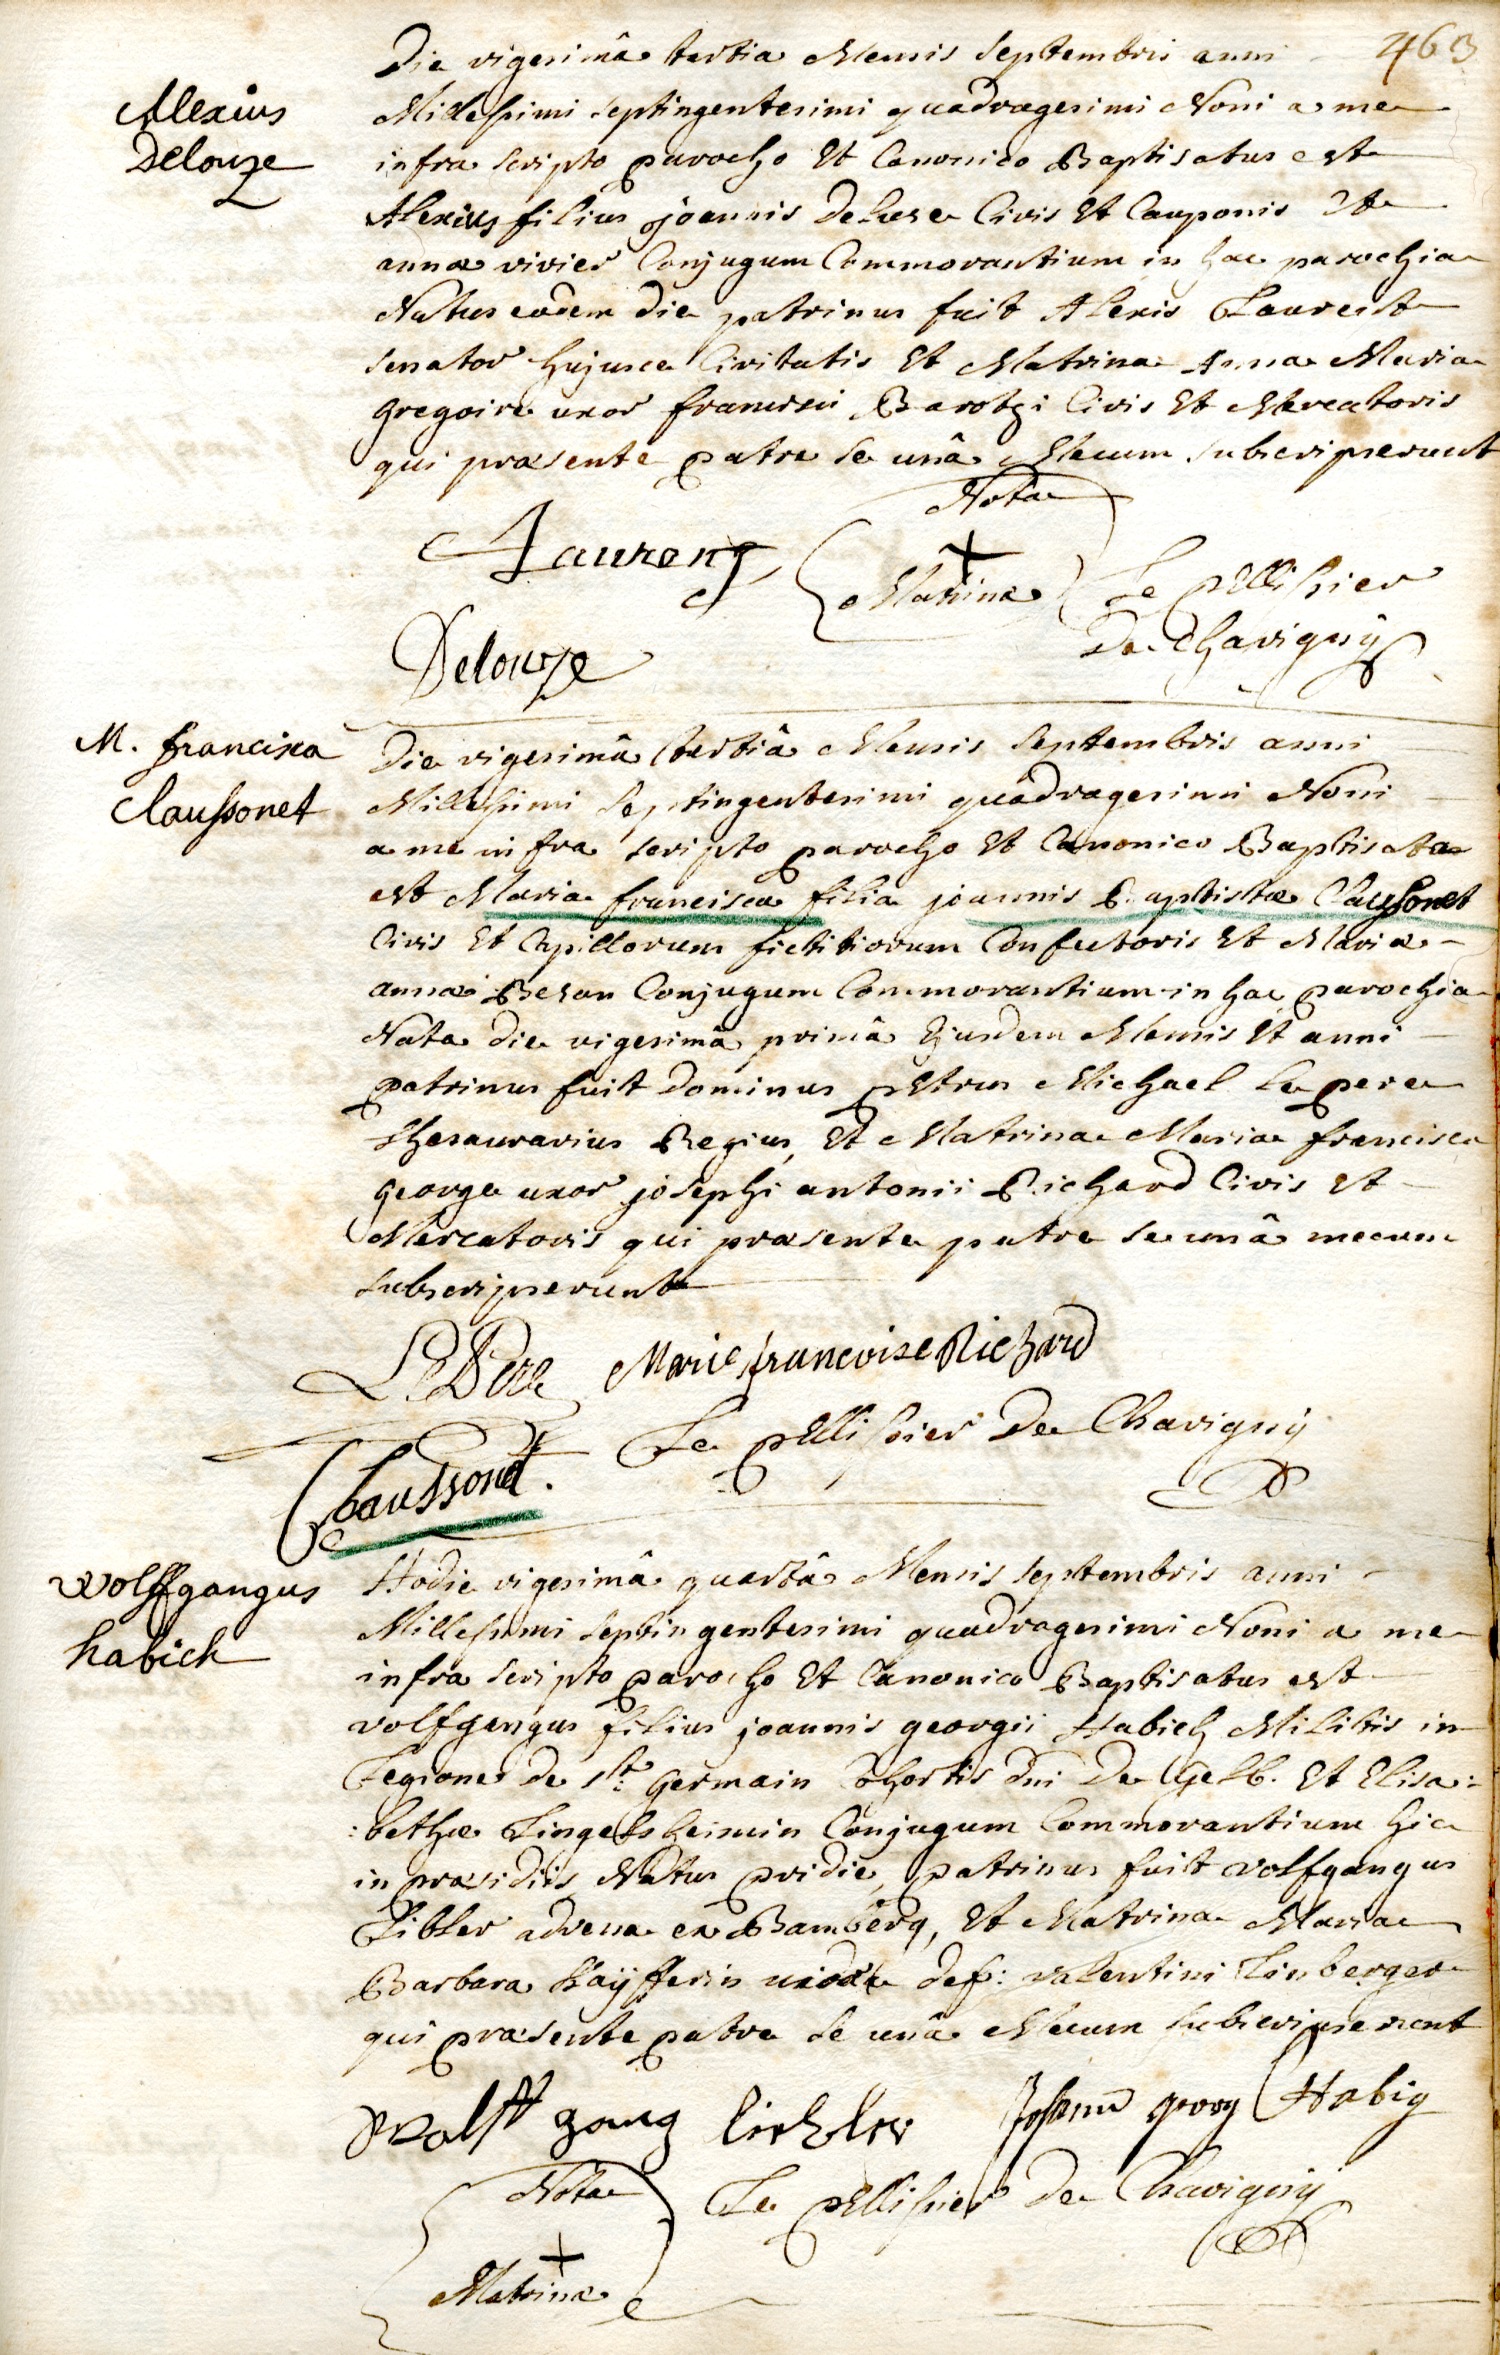 463
Die vigesimâ tertia Mensis Septembris anni
Alexius
Delouze
Millesimi septingentesimi quadragesimi Noni a me
infra scripto parocho Et Canonico Baptisatus est
Alexius filius joannis Deluze Civis Et Cauponis Et
annæ vivier Conjugum Commorantium in hac parochia
Natus eadem die patrinus fuit Alexis Laurent
senator hujusce Civitatis Et Matrina Anna Maria
gregoire uxor francisci Barotzi Civis Et Mercatoris
qui præsente patre se unâ Mecum subscripserunt
Nota
Laurens
+
Matrinæ
Le pEllissier
De Chavignÿ
Delouze
M. francisca
Claussonet
Die vigesimâ tertiâ Mensis Septembris anni
Millesimi Septingentesimi quadragesimi Noni
a me infra scripto parocho Et Canonico Baptisata
est Maria francisca filia joannis Baptistæ Claussonet
Civis Et Capillorum fictitiorum Confectoris Et Mariæ
annæ Besan Conjugum Commorantium in hac parochia
Nata die vigesimâ primâ Ejusdem Mensis Et anni
patrinus fuit Dominus pEtrus Michael Le pere
thesaurarius Regius, Et Matrina Maria francisca
george uxor josephi antonii Richard Civis Et
Mercatoris qui præsente patre se unâ mecum
subscripserunt
LePere Marie francoise Richard
Le pEllissier De Chavignÿ
Claussonet.
wolffgangus
habich
Hodie vigesimâ quartâ Mensis Septembris anni
Millesimi Septingentesimi quadragesimi Noni a me
infra scripto parocho Et Canonico Baptisatus est
volfgangus filius joannis georgii Habich Militis in
Legione de st: Germain Cohortis dni De Gelb. Et Elisa:
:bethæ Lingelsheimin Conjugum Commorantium hic
in præsidiis Natus pridie, patrinus fuit volfgangus
advena ex Bamberg, Et Matrina Maria
Barbara Kaÿfferin vidua def: valentini Linberger
qui præsente patre se unâ Mecum subscripserunt
Wolff gang Johann georg Habig
Nota
Le pEllissier De Chavignÿ
+
Matrinæ